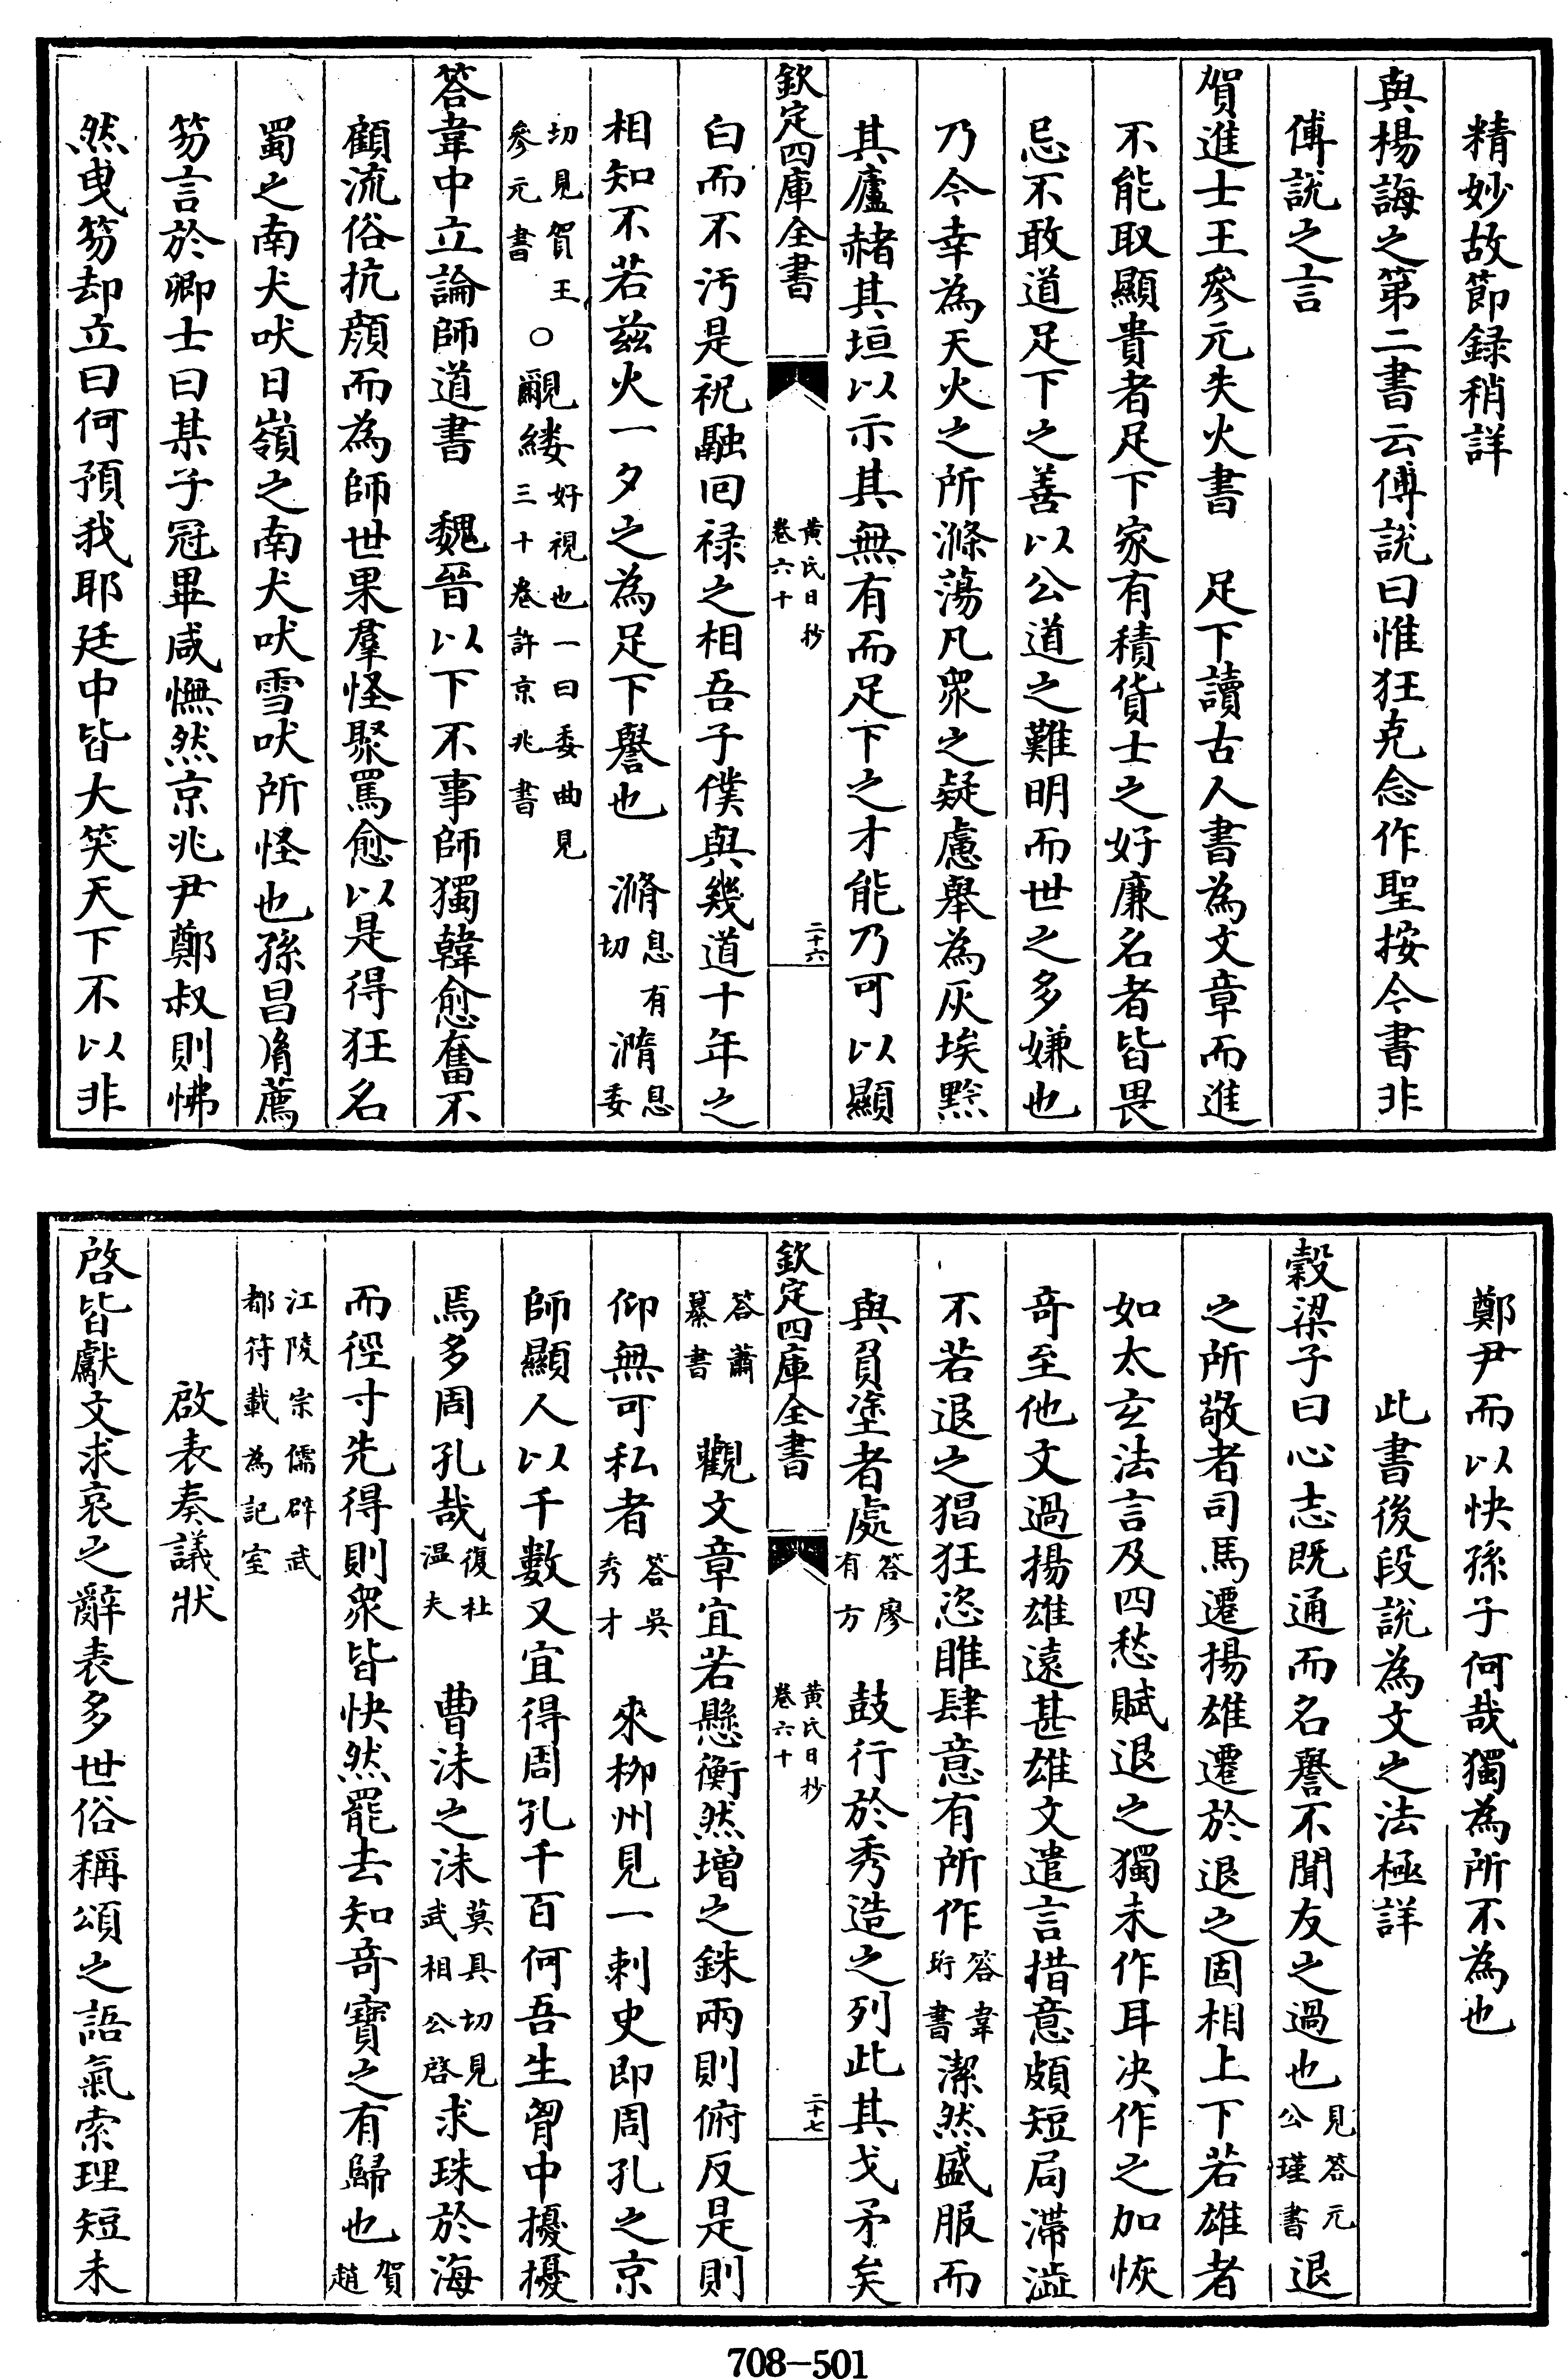 精妙故節録稍詳
與楊誨之第二書云傅說曰惟狂克念作聖按今書非
傅說之言
賀進士王參元失火書　足下讀古人書為文章而進
不能取顯貴者足下家有積貨士之好廉名者皆畏
忌不敢道足下之善以公道之難明而世之多嫌也
乃今幸為天火之所滌蕩凡衆之疑慮舉為灰埃黔
其廬赭其垣以示其無有而足下之才能乃可以顯
欽定四庫全書
黄氏日抄
卷六十
二十六
白而不汚是祝融回祿之相吾子僕與幾道十年之
相知不若兹火一夕之為足下譽也　瀡息有切瀡息委
切見賀王參元書○覶縷好視也一曰委曲見三十卷許京兆書
答韋中立論師道書　魏晉以下不事師獨韓愈奮不
顧流俗抗顔而為師世果羣怪聚罵愈以是得狂名
蜀之南犬吠日嶺之南犬吠雪吠所怪也孫昌胤薦
笏言於卿士曰某子冠畢咸憮然京兆尹鄭叔則怫
然曳笏却立曰何預我耶廷中皆大笑天下不以非
鄭尹而以快孫子何哉獨為所不為也
此書後段說為文之法極詳
穀梁子曰心志既通而名譽不聞友之過也見答元公瑾書退
之所敬者司馬遷揚雄遷於退之固相上下若雄者
如太玄法言及四愁賦退之獨未作耳决作之加恢
竒至他文過揚雄遠甚雄文遣言措意頗短局滯澁
不若退之猖狂恣睢肆意有所作答韋珩書潔然盛服而
與負塗者處答廖有方　鼓行於秀造之列此其戈矛矣
欽定四庫全書
黄氏日抄
卷六十
二十七
答蕭纂書　觀文章宜若懸衡然増之銖兩則俯反是則
仰無可私者答吳秀才　來柳州見一刺史即周孔之京
師顯人以千數又宜得周孔千百何吾生胷中擾擾
焉多周孔哉復杜温夫　曹沬之沬莫具切見武相公啓求珠於海
而徑寸先得則衆皆快然罷去知竒寶之有歸也賀趙
江陵宗儒辟武都符載為記室
啟表奏議狀
啓皆獻文求哀之辭表多世俗稱頌之語氣索理短未
708-501